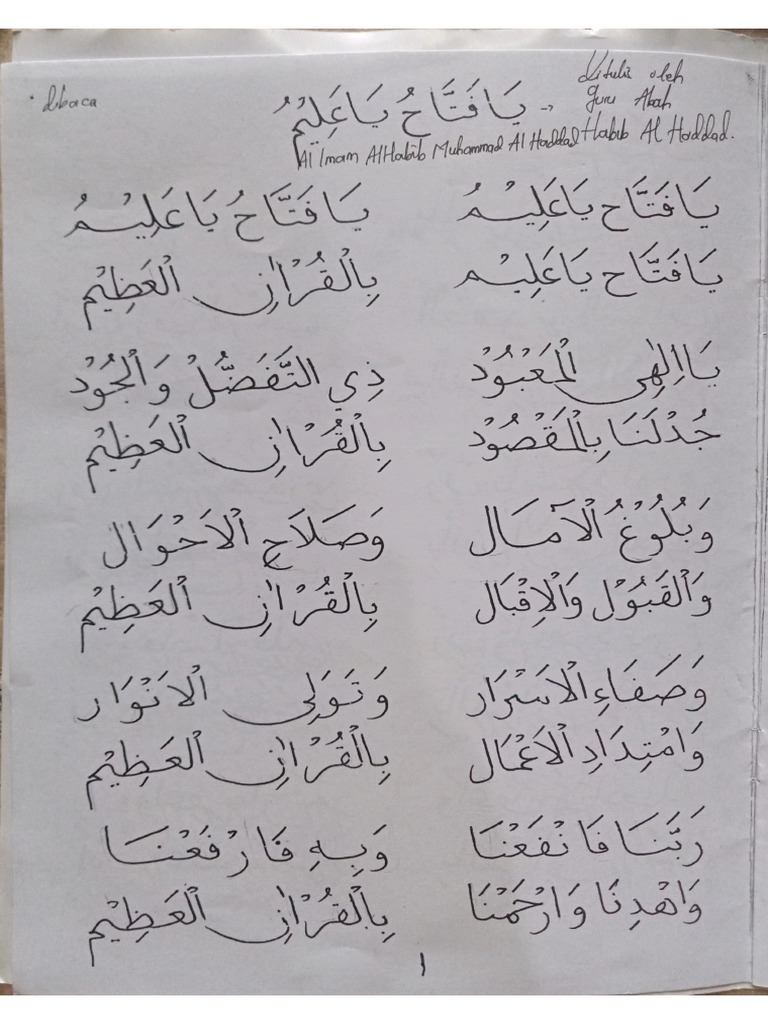 • dibaca
يَا فَتَّاحُ يَا عَلِيْمُ →
ditulis oleh
guru Abah
Habib Al Haddad.
Al Imam AlHabib Muhammad Al Haddad
يَا فَتَّاح يَا عَلِيْمُ يَا فَتَّاحُ يَا عَلِيْمُ
يَا فَتَّاح يَا عَلِيْم بِالْقُرْاٰنِ الْعَظِيْم
يَا اِلٰهِى الْمَعْبُوْدْ ذِي التَّفَضُّلْ وَالْجُوْدْ
جُدْلَنَا بِالْمَقْصُوْدْ بِالْقُرْاٰنِ الْعَظِيْم
وَبُلُوْغُ الْآمَال وَصَلَاحِ الْاَحْوَال
وَالْقَبُوْل وَالْاِقْبَال بِالْقُرْاٰنِ الْعَظِيْم
وَصَفَاءِ الْاَسْرَار وَتَوَلِى الْاَنْوَار
وَامْتِدَادِ الْاَعْمَال بِالْقُرْاٰنِ الْعَظِيْم
رَبَّنَا فَانْفَعْنَا وَبِهِ فَارْفَعْنَا
وَاهْدِنَا وَارْحَمْنَا بِالْقُرْاٰنِ الْعَظِيْم
١